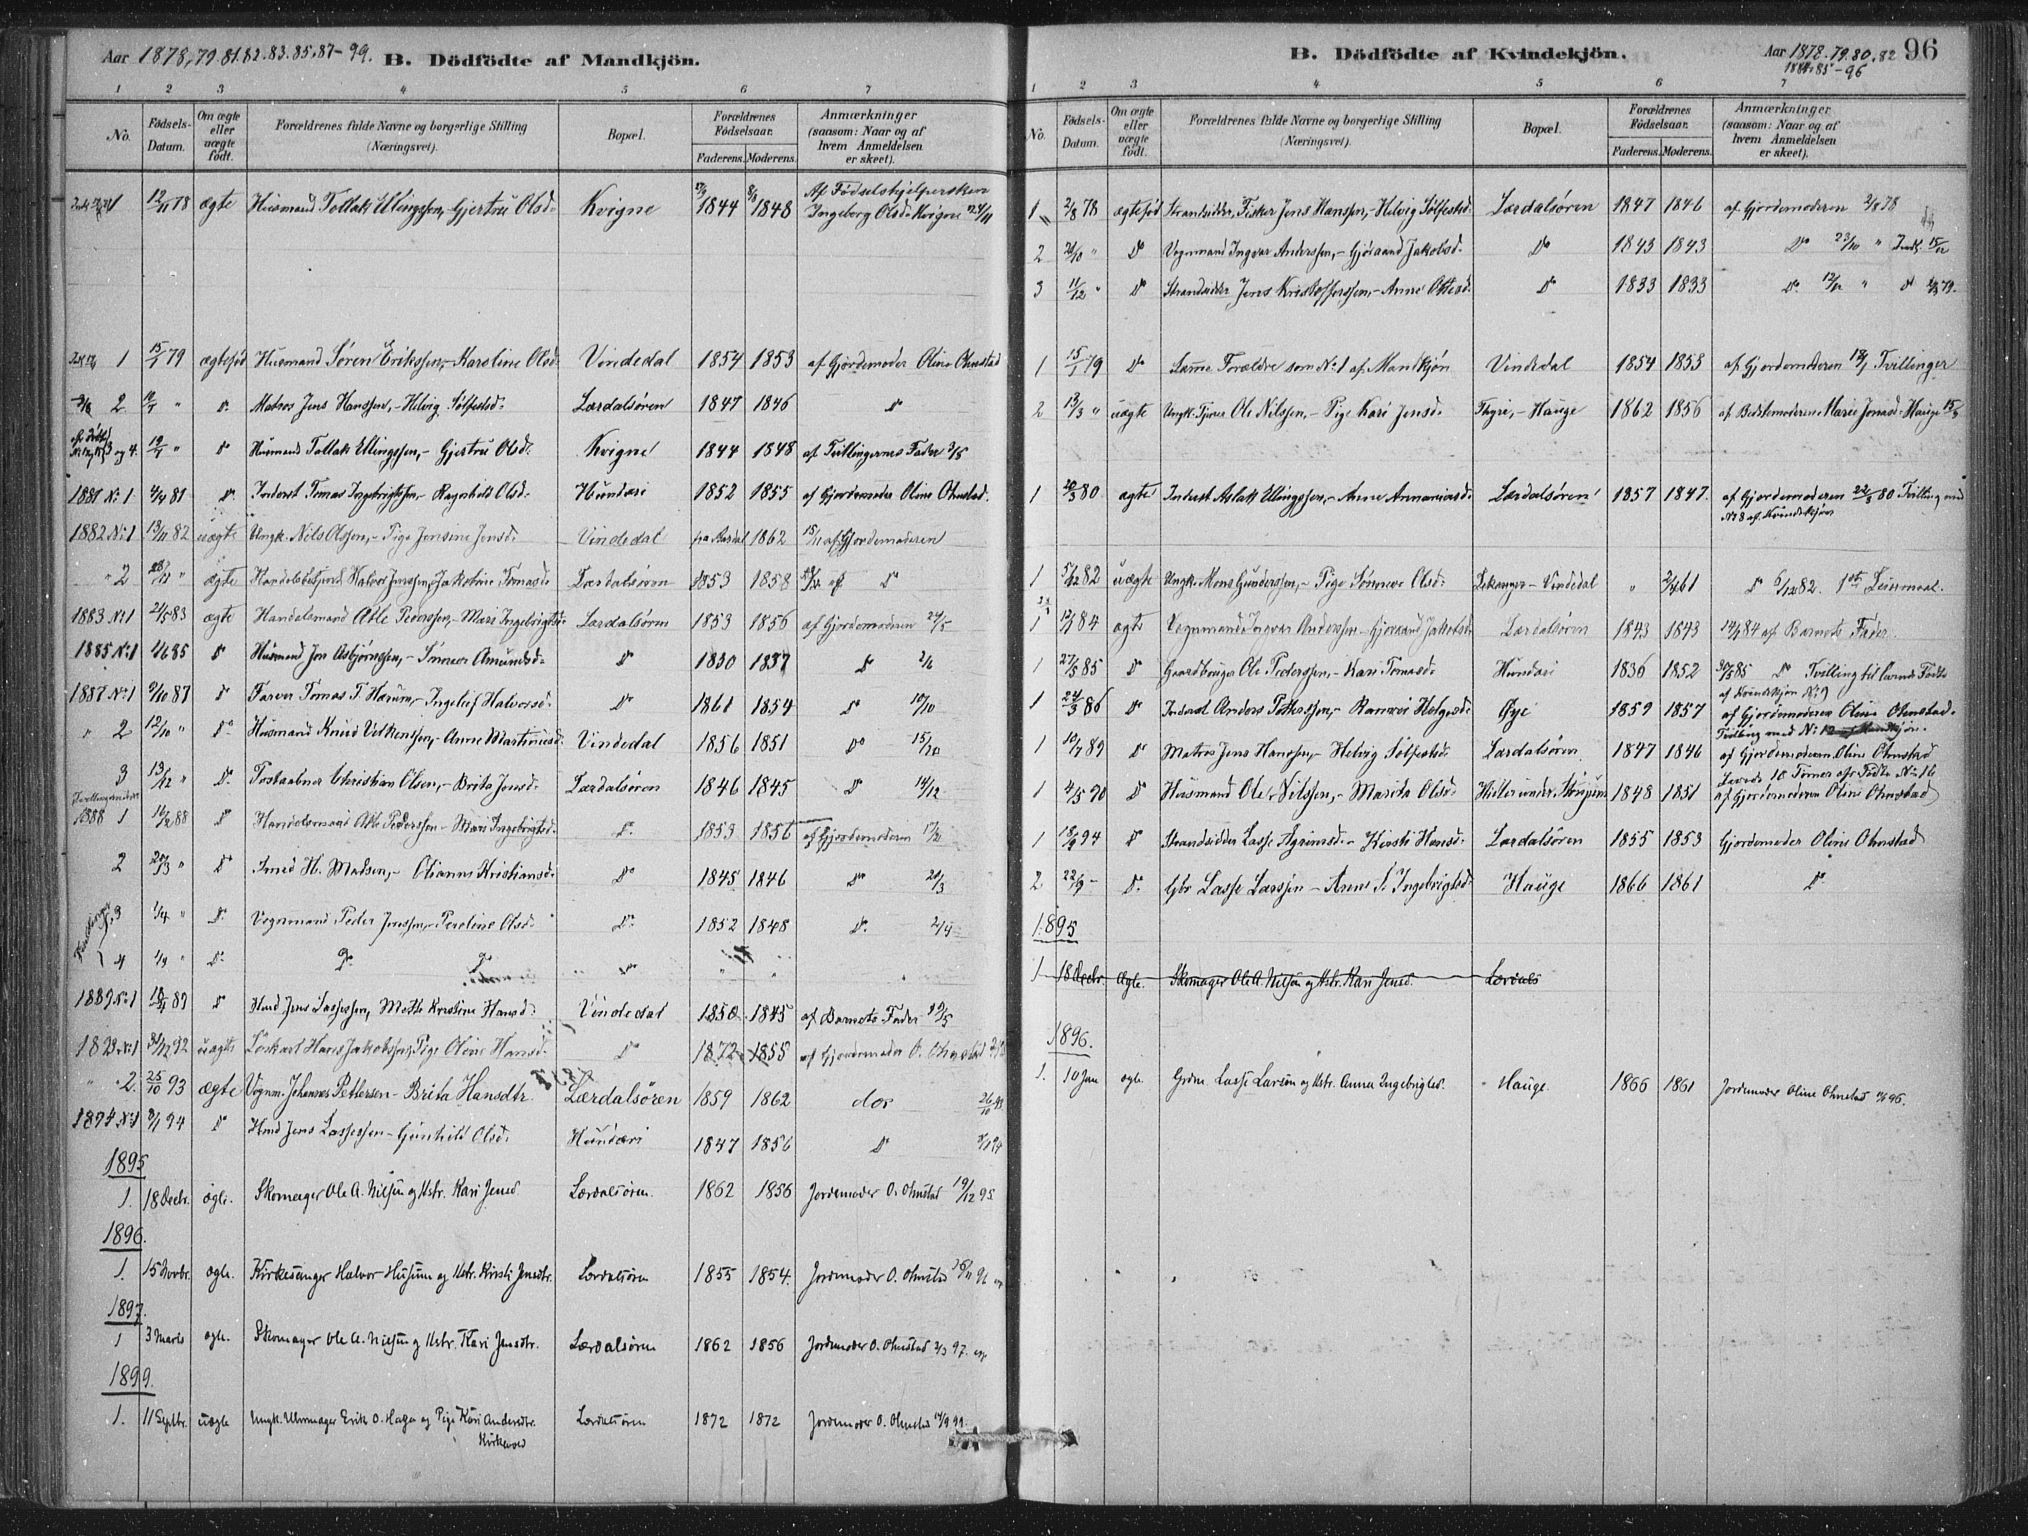 Aar 1878, 79. 81. 82. 83. 85. 87-99. B. Dödfödte af Mandkjön.
1 2 3 4 5 6 7
No. Födsels-Datum. Om ægte eller uægte födt. Forældrenes fulde Navne og borgerlige Stilling (Næringsvei). Bopæl. Forældrenes Födselsaar. Faderens. Moderens. Anmærkninger (saasom: Naar og af hvem Anmeldelsen er skeet).
1 12/11 78 ægte Husmand Tollak Ellingssen, Gjertru Olsd. Kvigne 1844 1848 Af Fødselshjelpersken Ingeborg Olsd. Kvigne
1 15/1 79 ægtefød Husmand Søren Erikssen, - Karoline Olsd. Vindedal 1854 1853 af Gjordemoder Oline Ohnstad
2 " do Matros Jens Hanssen, - Helvig Sølfestsd. Lærdalsøren 1847 1846 do
3 og 4. " do Husmand Tollak Ellingssen, - Gjertru Olsd. Kvigne 1844 1848 af Tvillingernes Fader
1881 No 1 81 do Inderst Tomas Ingebrigtssen, - Ragnhild Olsd. Hunderi 1852 1855 af Gjordemoder Oline Ohnstad.
1882 No 1 13/11 82 uægte Ungk. Nils Olssen, - Pige Jensine Jensd. Vindedal 1862 15/11 af Gjordemoderen
" 2 " ægte Handelsbetjent Halvor Jenssen, Jakobine Tomasd. Lærdalsøren 1853 1858 do
1883 No 1 21/5 83 ægte Handelsmand Atle Pederssen, - Mari Ingebrigtsd. Lærdalsøren 1853 1856 af Gjordemoderen 24/5
1885 No 1 85 do Husmand Jon Asbjørnssen, - Sønneve Amundsd. do 1830 1837 do
1887 No 1 9/10 87 do Farver Tomas T. Hærum, - Ingeleif Halvorsd. do 1861 1854 do 10/10
" 2 12/10 " do Husmand Knud Vilkenssen, - Anne Martinusd. Vindedal 1856 1851 do 15/10
3 13/12 " do Postaabner Christian Olsen, - Brita Jensd. Lærdalsøren 1846 1845 do 14/12
1888 1 16/2 88 do Handelsmand Atle Pederssen - Mari Ingebrigtsd. do 1853 1856 af Gjordemoderen 17/2
2 20/3 " do Smed H. Madsen, - Olianna Kristiansd. do 1845 1846 do 20/3
3 1/4 " do Vegnmand Peder Jenssen, - Peroline Olsd. do 1852 1848 do 2/4
4 " do do do do " "
1889 No 1 89 do Hmd Jens Lassessen, Mette Kristine Hansd. Vindedal 1850 1845 af Barnets Fader
1893 No 1 31/12 92 uægte Løskarl Hans Jakobssen, Pige Oline Hansd. do 1872 1855 af Gjordemoder O. Ohnstad
" 2. 25/10 93 ægte Vognm. Johannes Pettersen - Brita Hansdtr. Lærdalsøren 1859 1862 do
1894 No 1 94 do Hmd Jens Lassessen - Gunhild Olsd. Hundæri 1847 1856 do
1895
1. 18 Decbr. ægte. Skomager Ole A. Nilsen og Hstr. Kari Jensd Lærdalsøren. 1862 1856 Jordemoder O. Ohnstad 19/12 95
1896.
1. 15 Novbr. ægte. Kirkesanger Halvor Husum og Hstr. Kirsti Jensdtr. Lærdalsøren 1855 1854. Jordemoder O. Ohnstad
1897.
1 3 Marts ægte. Skomager Ole A. Nilsen og Hstr. Kari Jensdtr. Lærdalsøren 1862 1856 Jordemoder O. Ohnstad 97.
1899.
1. 11 Septbr. uægte Ungk. Uhrmager Erik O. Haga og Pige Kari Andersdtr. Kirkevold Lærdalsøren 1872 1872 Jordemoder O. Ohnstad 99.
B. Dödfödte af Kvindekjön. Aar 1878. 79. 80. 82 1884. 85-96 96
1 2 3 4 5 6 7
No. Födsels-Datum. Om ægte eller uægte födt. Forældrenes fulde Navne og borgerlige Stilling (Næringsvei). Bopæl. Forældrenes Födselsaar. Faderens. Moderens. Anmærkninger (saasom: Naar og af hvem Anmeldelsen er skeet).
1 2/8 78 ægtefød Strandsidder, Fisker Jens Hanssen, - Helvig Sølfestsd. Lærdalsøren 1847 1846 af Gjordemoderen 2/8 78
2 " do Vegnmand Ingvar Anderssen, - Gjøraand Jakobsd. do 1843 1843 do 23/10 "
3 11/12 " do Strandsidder Jens Kristofferssen, - Anne Ottesd. do 1833 1833 do 12/12 "
1 15/1 79 do Samme Forældre som No 1 af Mandkjøn Vindedal 1854 1853 af Gjordemoderen Tvillinger
2 13/3 " uægte Ungk. Tjener Ole Nilssen, - Pige Kari Jensd. Thyri, - Hauge 1862 1856 af Bedstemoderen Marie Jonasd. Hauge
1 20/3 80 ægte Inderst Aslak Ellingssen, - Anne Lærdalsøren 1857 1847. af Gjordemoderen 22/3 80 Tvilling med No 8 af Kvindekjøn
1 5/12 82 uægte Ungk. Mons Gunderssen, - Pige Sønneve Olsd. Lekanger - Vindedal " 61 do 6/12 82. 1ste Leiermaal.
1 84 ægte Vegnmand Ingvar Anderssen - Gjøraand Jakobsd. Lærdalsøren 1843 1843 84 af Barnets Fader.
1 27/5 85 do Gaardbruger Ole Pederssen, - Kari Tomasd. Hundæri 1836 1852 30/5 85 do Tvilling til levende Fødte af Kvindekjøn No 9
1 24/3 86 do Inderst Anders Petterssen, - Rannvei Helgesd. Øye 1859 1857 af Gjordemoderen Oline Ohnstad. Tvilling med No 12 af Mandkjøn.
1 10/7 89 do Matros Jens Hanssen, - Helvig Sølfestsd. Lærdalsøren 1847 1846 af Gjordemoderen Oline Ohnstad
1 4/5 90 do Husmand Ole Nilssen, - Marita Olsd. 1848 1851 af Gjordemoderen Oline Ohnstad
1 18/9 94 do Strandsidder Lasse Agrimsd. - Kirsti Hansd. Lærdalsøren 1855 1853 Gjordemoder Oline Ohnstad
2 22/9 - do Gbr Lasse Larssen - Anna S. Ingebrigtsd. Hauge 1866 1861 do
1895
1 18 Decbr. Ægte. Skomager Ole A. Nilsen og Hstr. Kari Jensd. Lærdals
1896.
1. 10 Jan ægte. Grdm. Lasse Larson og Hstr. Anna Ingebrigtsd. Hauge. 1866 1861 Jordemoder Oline Ohnstad 96.